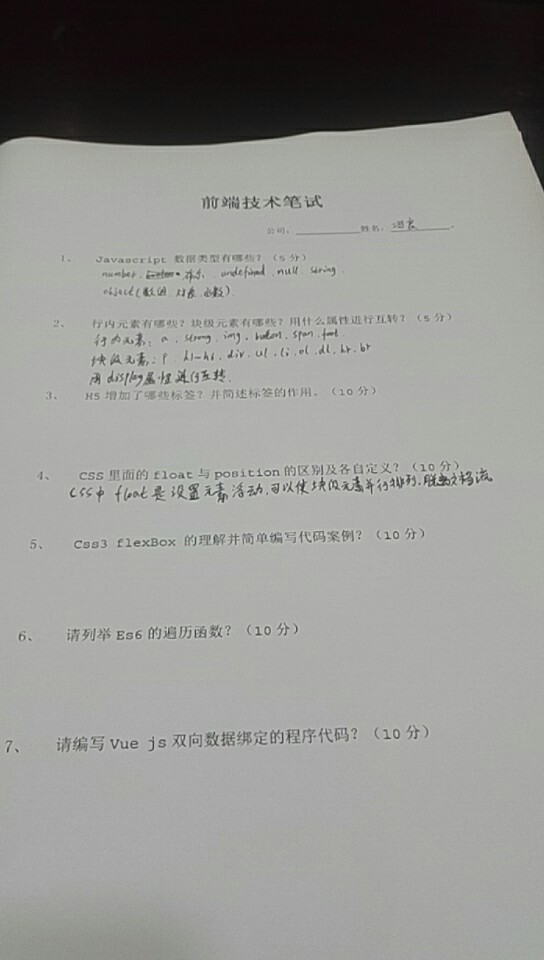 前端技术笔试
公司：__________姓名：__________.
1、 Javascript 数据类型有哪些？（5分）
number、 布尔、undefined、null、string、
object(数组、对象、函数)
2、 行内元素有哪些？块级元素有哪些？用什么属性进行互转？（5分）
行内元素：a、strong、img、button、span、font
块级元素：P、h1-h6、div、ul、li、ol、dl、hr、br
用display属性进行互转.
3、 H5 增加了哪些标签？并简述标签的作用。（10分）
4、 CSS 里面的 float 与 position 的区别及各自定义？（10分）
CSS中 float是设置元素浮动,可以使块级元素并行排列,脱离文档流
5、 Css3 flexBox 的理解并简单编写代码案例？（10分）
6、 请列举 Es6 的遍历函数？（10分）
7、 请编写 Vue js 双向数据绑定的程序代码？（10分）